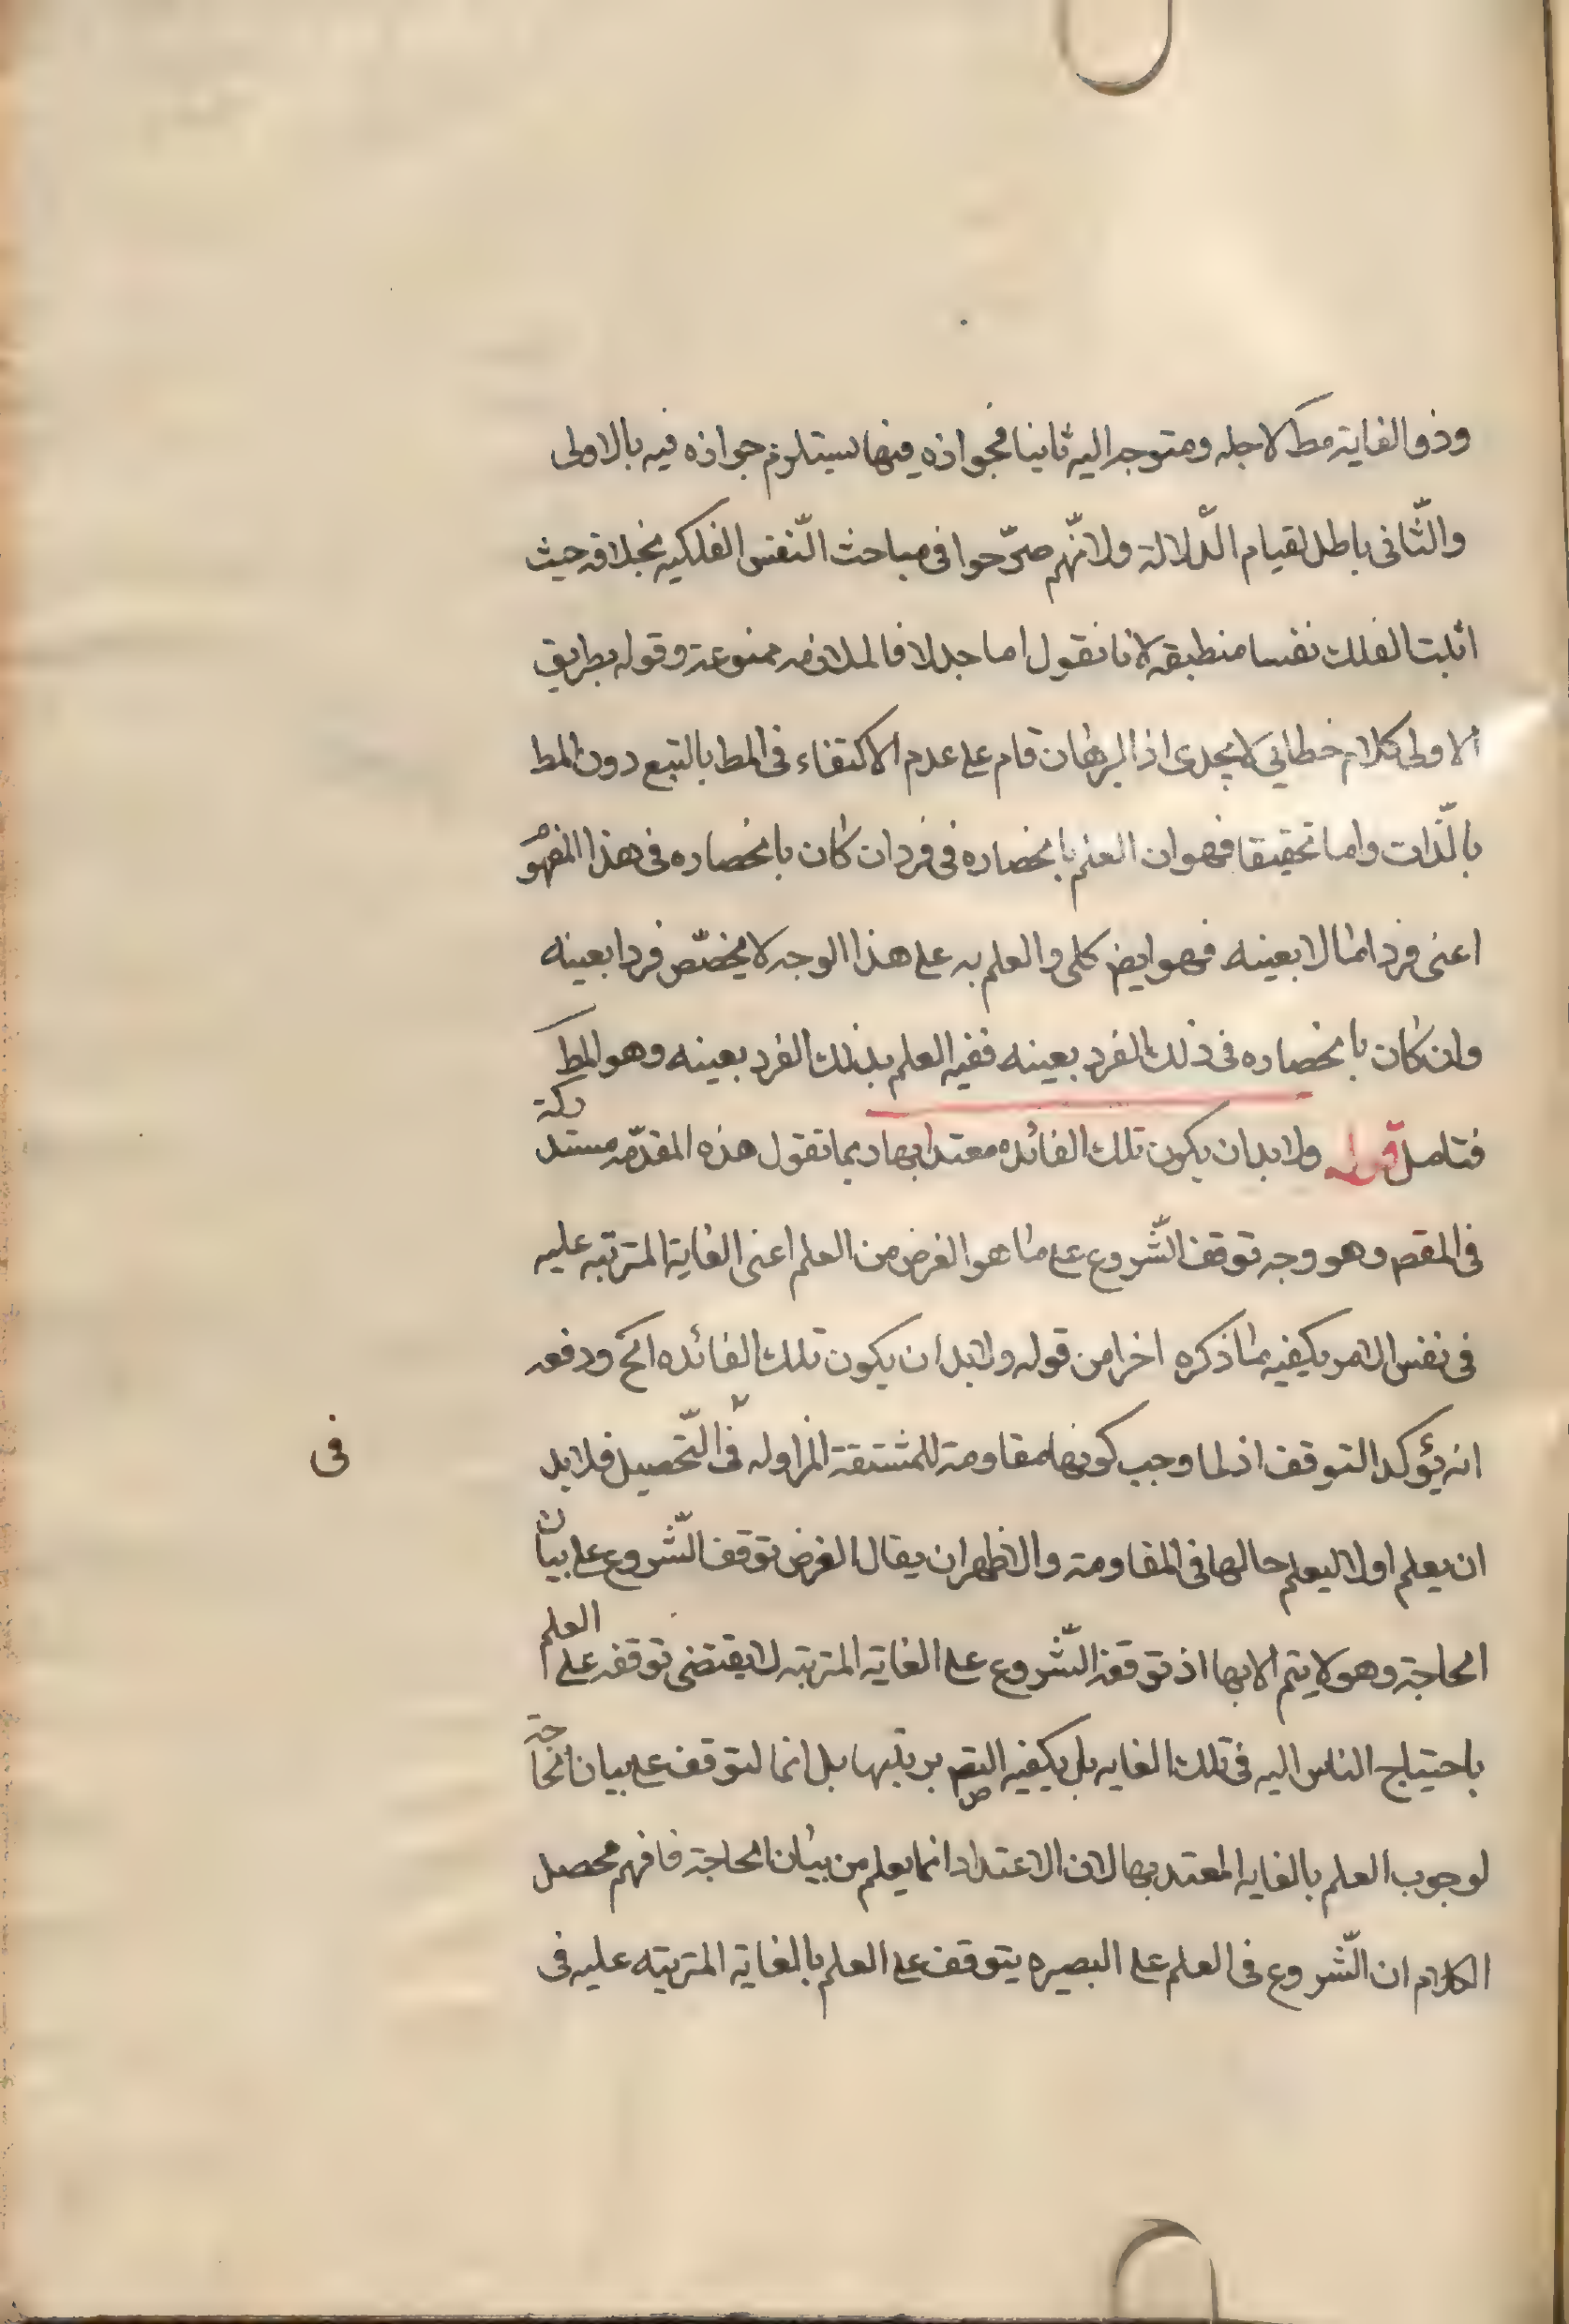 وذو الغاية مط لاجله ومتوجه اليه ثانيا فجوازه فيها يستلزم جوازه فيه بالاولى
والثّانى باطل لقيام الدّلالة ولانّهم صرّحوا فى مباحث النّفس الفلكيه بخلافه حيث
اثبت الفلك نفسا منطبقه لانا نقول اما جدلا فالملازمه ممنوعة وقوله بطريق
الاولى كلام خطابي لا يجدى اذ البرهان قام على عدم الاكتفاء فى المط بالتبع دون المط
بالذّات واما تحقيقا فهو ان العلم بانحصاره فى فرد ان كان بانحصاره فى هذا المفهوم
اعنى فردا ما لا بعينه فهو ايض كلى والعلم به على هذا الوجه لا يخصّص فردا بعينه
وان كان بانحصاره فى ذلك الفرد بعينه ففيه العلم بذلك الفرد بعينه وهو المط
فتامل قوله ولا بد ان يكون تلك الفائده معتدا بها ربما تقول هذه المقدّمه مستدركة
فى المقصم وهو وجه توقف الشّروع على ما هو الغرض من العلم اعنى الغاية المترتبه عليه
فى نفس الامر يكفيه ما ذكره اخرا من قوله ولا بد ان يكون تلك الفائده الخ ودفعه
انه يؤكد التوقف اذ لما وجب كونها مقاومة للمشقة المزاوله فى التّحصيل فلا بد
فى
ان يعلم اولا ليعلم حالها فى المقاومة والاظهر ان يقال الغرض توقف الشّروع على بيان
الحاجة وهو لا يتم الا بها اذ توقف الشّروع على الغاية المترتبه لا يقتضى توقفه على العلم
باحتياج الناس اليه فى تلك الغايه بل يكفيه التص بترتبها بل انما لتوقف على بيان الحاجة
لوجوب العلم بالغايه المعتد بها لان الاعتداد انما يعلم من بيان الحاجة فافهم محصل
الكلام ان الشّروع فى العلم على البصيره يتوقف على العلم بالغاية المترتبه عليه فى